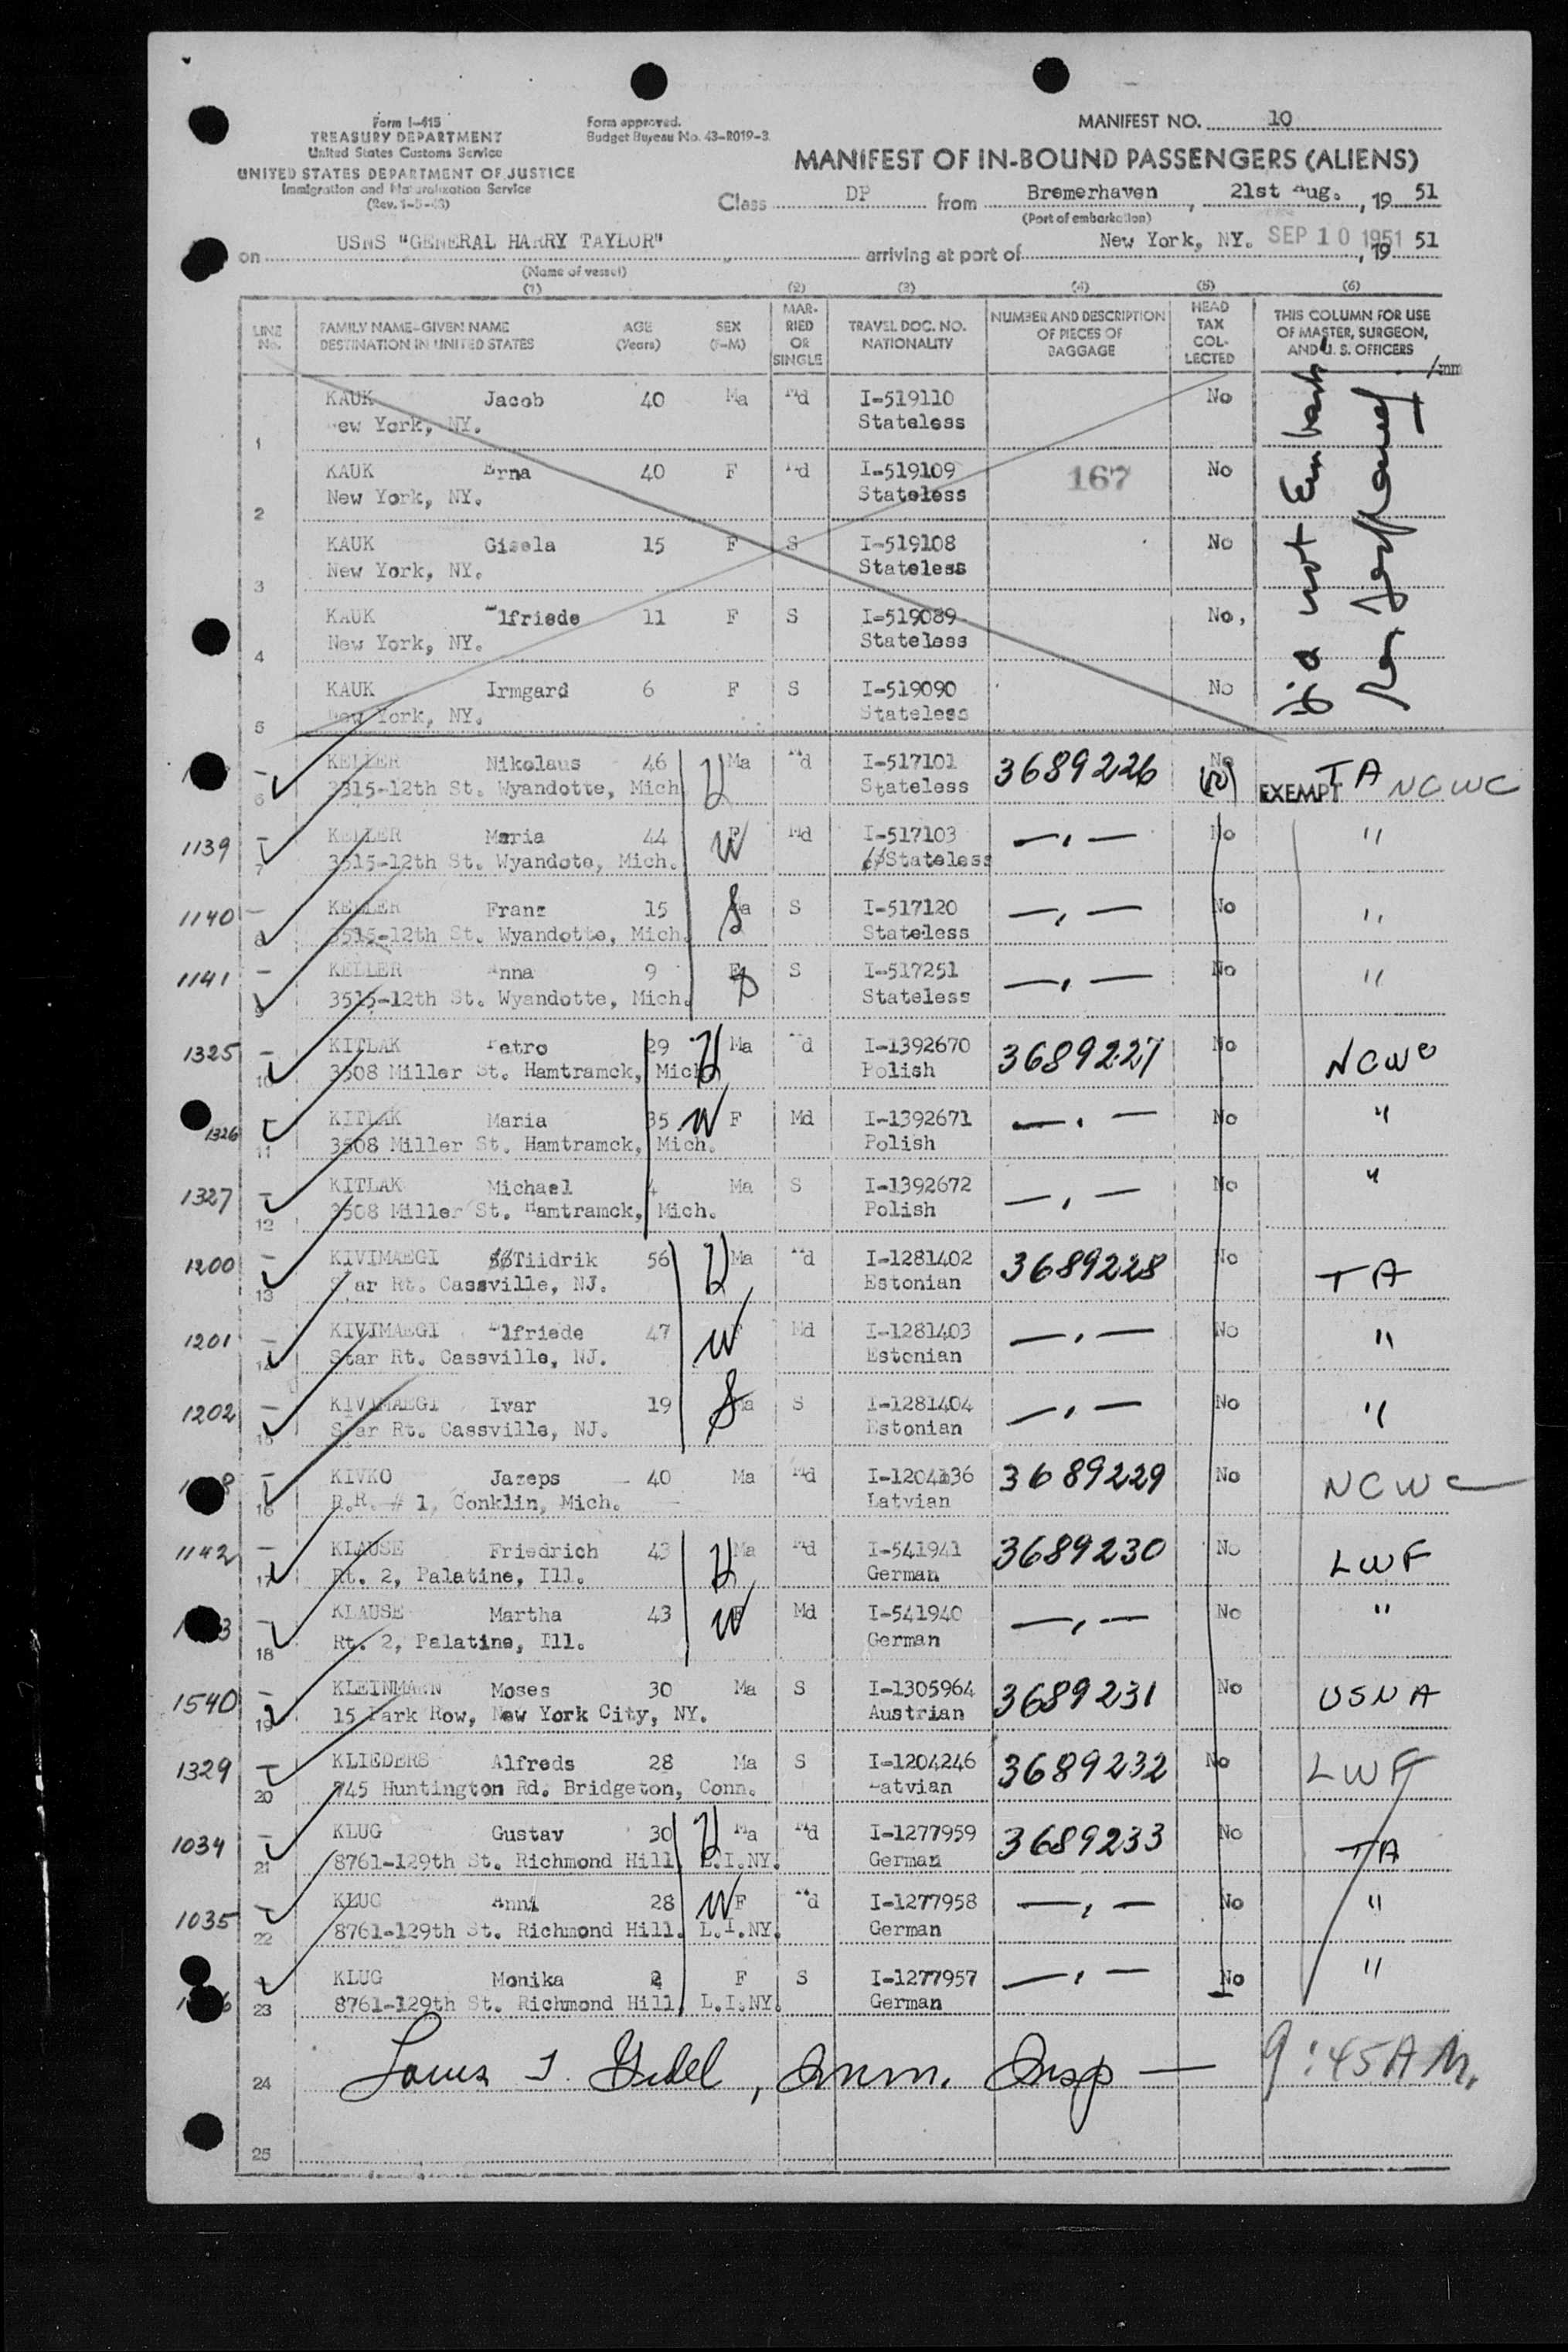 Form I-415
TREASURY DEPARTMENT
United States Customs Service
UNITED STATES DEPARTMENT OF JUSTICE
Immigration and Naturalization Service
Form approved.
Budget Bureau No. 43-R019-3.
MANIFEST NO. 10
MANIFEST OF IN-BOUND PASSENGERS (ALIENS)
Class DP from Bremerhaven, 21st Aug., 19 51
(Port of embarkation)
on USNS "GENERAL HARRY TAYLOR" arriving at port of New York, NY. SEP 10 1951, 19 51
(Name of vessel)
(1) (2) (3) (4) (5) (6)
LINE No. FAMILY NAME-GIVEN NAME DESTINATION IN UNITED STATES AGE (Years) SEX (F-M) MARRIED OR SINGLE TRAVEL DOC. NO. NATIONALITY NUMBER AND DESCRIPTION OF PIECES OF BAGGAGE HEAD TAX COLLECTED THIS COLUMN FOR USE OF MASTER, SURGEON, AND U. S. OFFICERS
/mm
Did not Embark
KAUK Jacob 40 Ma Md I-519110 No
1 ew York, NY. Stateless
KAUK Erna 40 F Md I-519109 167 No
2 New York, NY. Stateless
KAUK Gisela 15 F S I-519108 No
3 New York, NY. Stateless
KAUK Elfriede 11 F S I-519089 No,
4 New York, NY. Stateless
KAUK Irmgard 6 F S I-519090 No
5 New York, NY. Stateless
KELLER Nikolaus 46 H Ma Md I-517101 3689226 No EXEMPT TA NCWC
6 3515-12th St. Wyandotte, Mich. Stateless
1139 KELLER Maria 44 W F Md I-517103 —,— No "
7 3515-12th St. Wyandote, Mich. Stateless
1140 KELLER Franz 15 S Ma S I-517120 —,— No "
8 3515-12th St. Wyandotte, Mich. Stateless
1141 KELLER Anna 9 F S I-517251 —,— No "
9 3515-12th St. Wyandotte, Mich. Stateless
1325 KITLAK Petro 29 H Ma Md I-1392670 3689227 No NCWC
10 3508 Miller St. Hamtramck, Mich. Polish
1326 KITLAK Maria 35 W F Md I-1392671 —,— No "
11 3508 Miller St. Hamtramck, Mich. Polish
1327 KITLAK Michael 4 Ma S I-1392672 —,— No "
12 3508 Miller St. Hamtramck, Mich. Polish
1200 KIVIMAEGI Tiidrik 56 H Ma Md I-1281402 3689228 No TA
13 Star Rt. Cassville, NJ. Estonian
1201 KIVIMAEGI Elfriede 47 W F Md I-1281403 —,— No "
14 Star Rt. Cassville, NJ. Estonian
1202 KIVIMAEGI Ivar 19 S Ma S I-1281404 —,— No "
15 Star Rt. Cassville, NJ. Estonian
KIVKO Jazeps 40 Ma Md I-1204136 3689229 No NCWC
16 R.R. # 1, Conklin, Mich. Latvian
1142 KLAUSE Friedrich 43 H Ma Md I-541941 3689230 No LWF
17 Rt. 2, Palatine, Ill. German
KLAUSE Martha 43 W F Md I-541940 —,— No "
18 Rt. 2, Palatine, Ill. German
1540 KLEINMANN Moses 30 Ma S I-1305964 3689231 No USNA
19 15 Park Row, New York City, NY. Austrian
1329 KLIEDERS Alfreds 28 Ma S I-1204246 3689232 No LWF
20 745 Huntington Rd. Bridgeton, Conn. Latvian
1034 KLUG Gustav 30 H Ma Md I-1277959 3689233 No TA
21 8761-129th St. Richmond Hill. L.I.NY. German
1035 KLUG Anni 28 W F Md I-1277958 —,— No "
22 8761-129th St. Richmond Hill. L.I.NY. German
KLUG Monika 2 F S I-1277957 —,— No "
23 8761-129th St. Richmond Hill. L.I.NY. German
24 Louis J. , Imm. Insp — 9:45 AM.
25